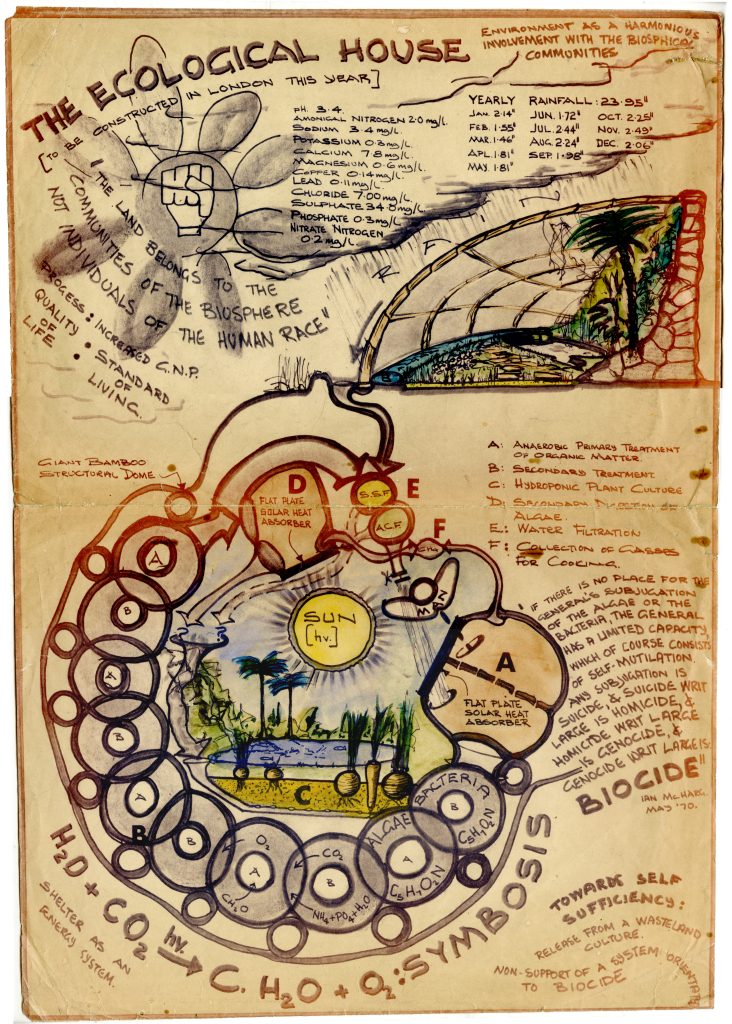 THE ECOLOGICAL HOUSE
[TO BE CONSTRUCTED IN LONDON THIS YEAR]
ENVIRONMENT AS A HARMONIOUS
INVOLVEMENT WITH THE BIOSPHICAL
COMMUNITIES
PH. 3.4.
AMONICAL NITROGEN 2.0 mg/L.
SODIUM 3.4 mg/L.
POTASSIUM 0.3 mg/L.
CALCIUM 7.8 mg/L.
MAGNESIUM 0.6 mg/L.
COPPER 0.14 mg/L.
LEAD 0.11 mg/L.
CHLORIDE 7.00 mg/L.
SULPHATE 34.8 mg/L.
PHOSPHATE 0.3 mg/L.
NITRATE NITROGEN
0.2 mg/L.
YEARLY RAINFALL: 23.95"
JAN. 2.14" JUN. 1.72" OCT. 2.25"
FEB. 1.55" JUL. 2.44" NOV. 2.49"
MAR. 1.46" AUG. 2.24" DEC. 2.06"
APL. 1.81" SEP. 1.98"
MAY. 1.81"
"THE LAND BELONGS TO THE
COMMUNITIES OF THE BIOSPHERE
NOT INDIVIDUALS OF THE HUMAN RACE"
PROCESS: INCREASED G.N.P.
QUALITY • STANDARD
OF OF
LIFE • LIVING.
GIANT BAMBOO
STRUCTURAL DOME
A: ANAEROBIC PRIMARY TREATMENT
OF ORGANIC MATTER.
B: SECONDARY TREATMENT
C: HYDROPONIC PLANT CULTURE
D: SECONDARY DIGESTION OF
ALGAE.
E: WATER FILTRATION
F: COLLECTION OF GASSES
FOR COOKING.
D
FLAT PLATE
SOLAR HEAT
ABSORBER
S.S.F
A.C.F
E
F
CH4
MAN
SUN
[hv.]
A
FLAT PLATE
SOLAR HEAT
ABSORBER
C
A
B
A
B
A
B
B
O2
A
CH2O
CO2
B
NH4+PO4+H2O
ALGAE
A
C5H7O2N
BACTERIA
B
C5H7O2N
"IF THERE IS NO PLACE FOR THE
GENERAL'S SUBJUGATION
OF THE ALGAE OR THE
BACTERIA, THE GENERAL
HAS A LIMITED CAPACITY,
WHICH OF COURSE CONSISTS
OF SELF-MUTILATION.
ANY SUBJUGATION IS
SUICIDE, & SUICIDE WRIT
LARGE IS HOMICIDE, &
HOMICIDE WRIT LARGE
IS GENOCIDE, &
GENOCIDE WRIT LARGE IS:
BIOCIDE"
IAN McHARG.
MAY '70.
H2O + CO2 hv. → C.H2O + O2: SYMBOSIS
SHELTER AS AN
ENERGY SYSTEM.
TOWARDS SELF
SUFFICIENCY:
RELEASE FROM A WASTELAND
CULTURE.
NON-SUPPORT OF A SYSTEM ORIENTATED
TO BIOCIDE